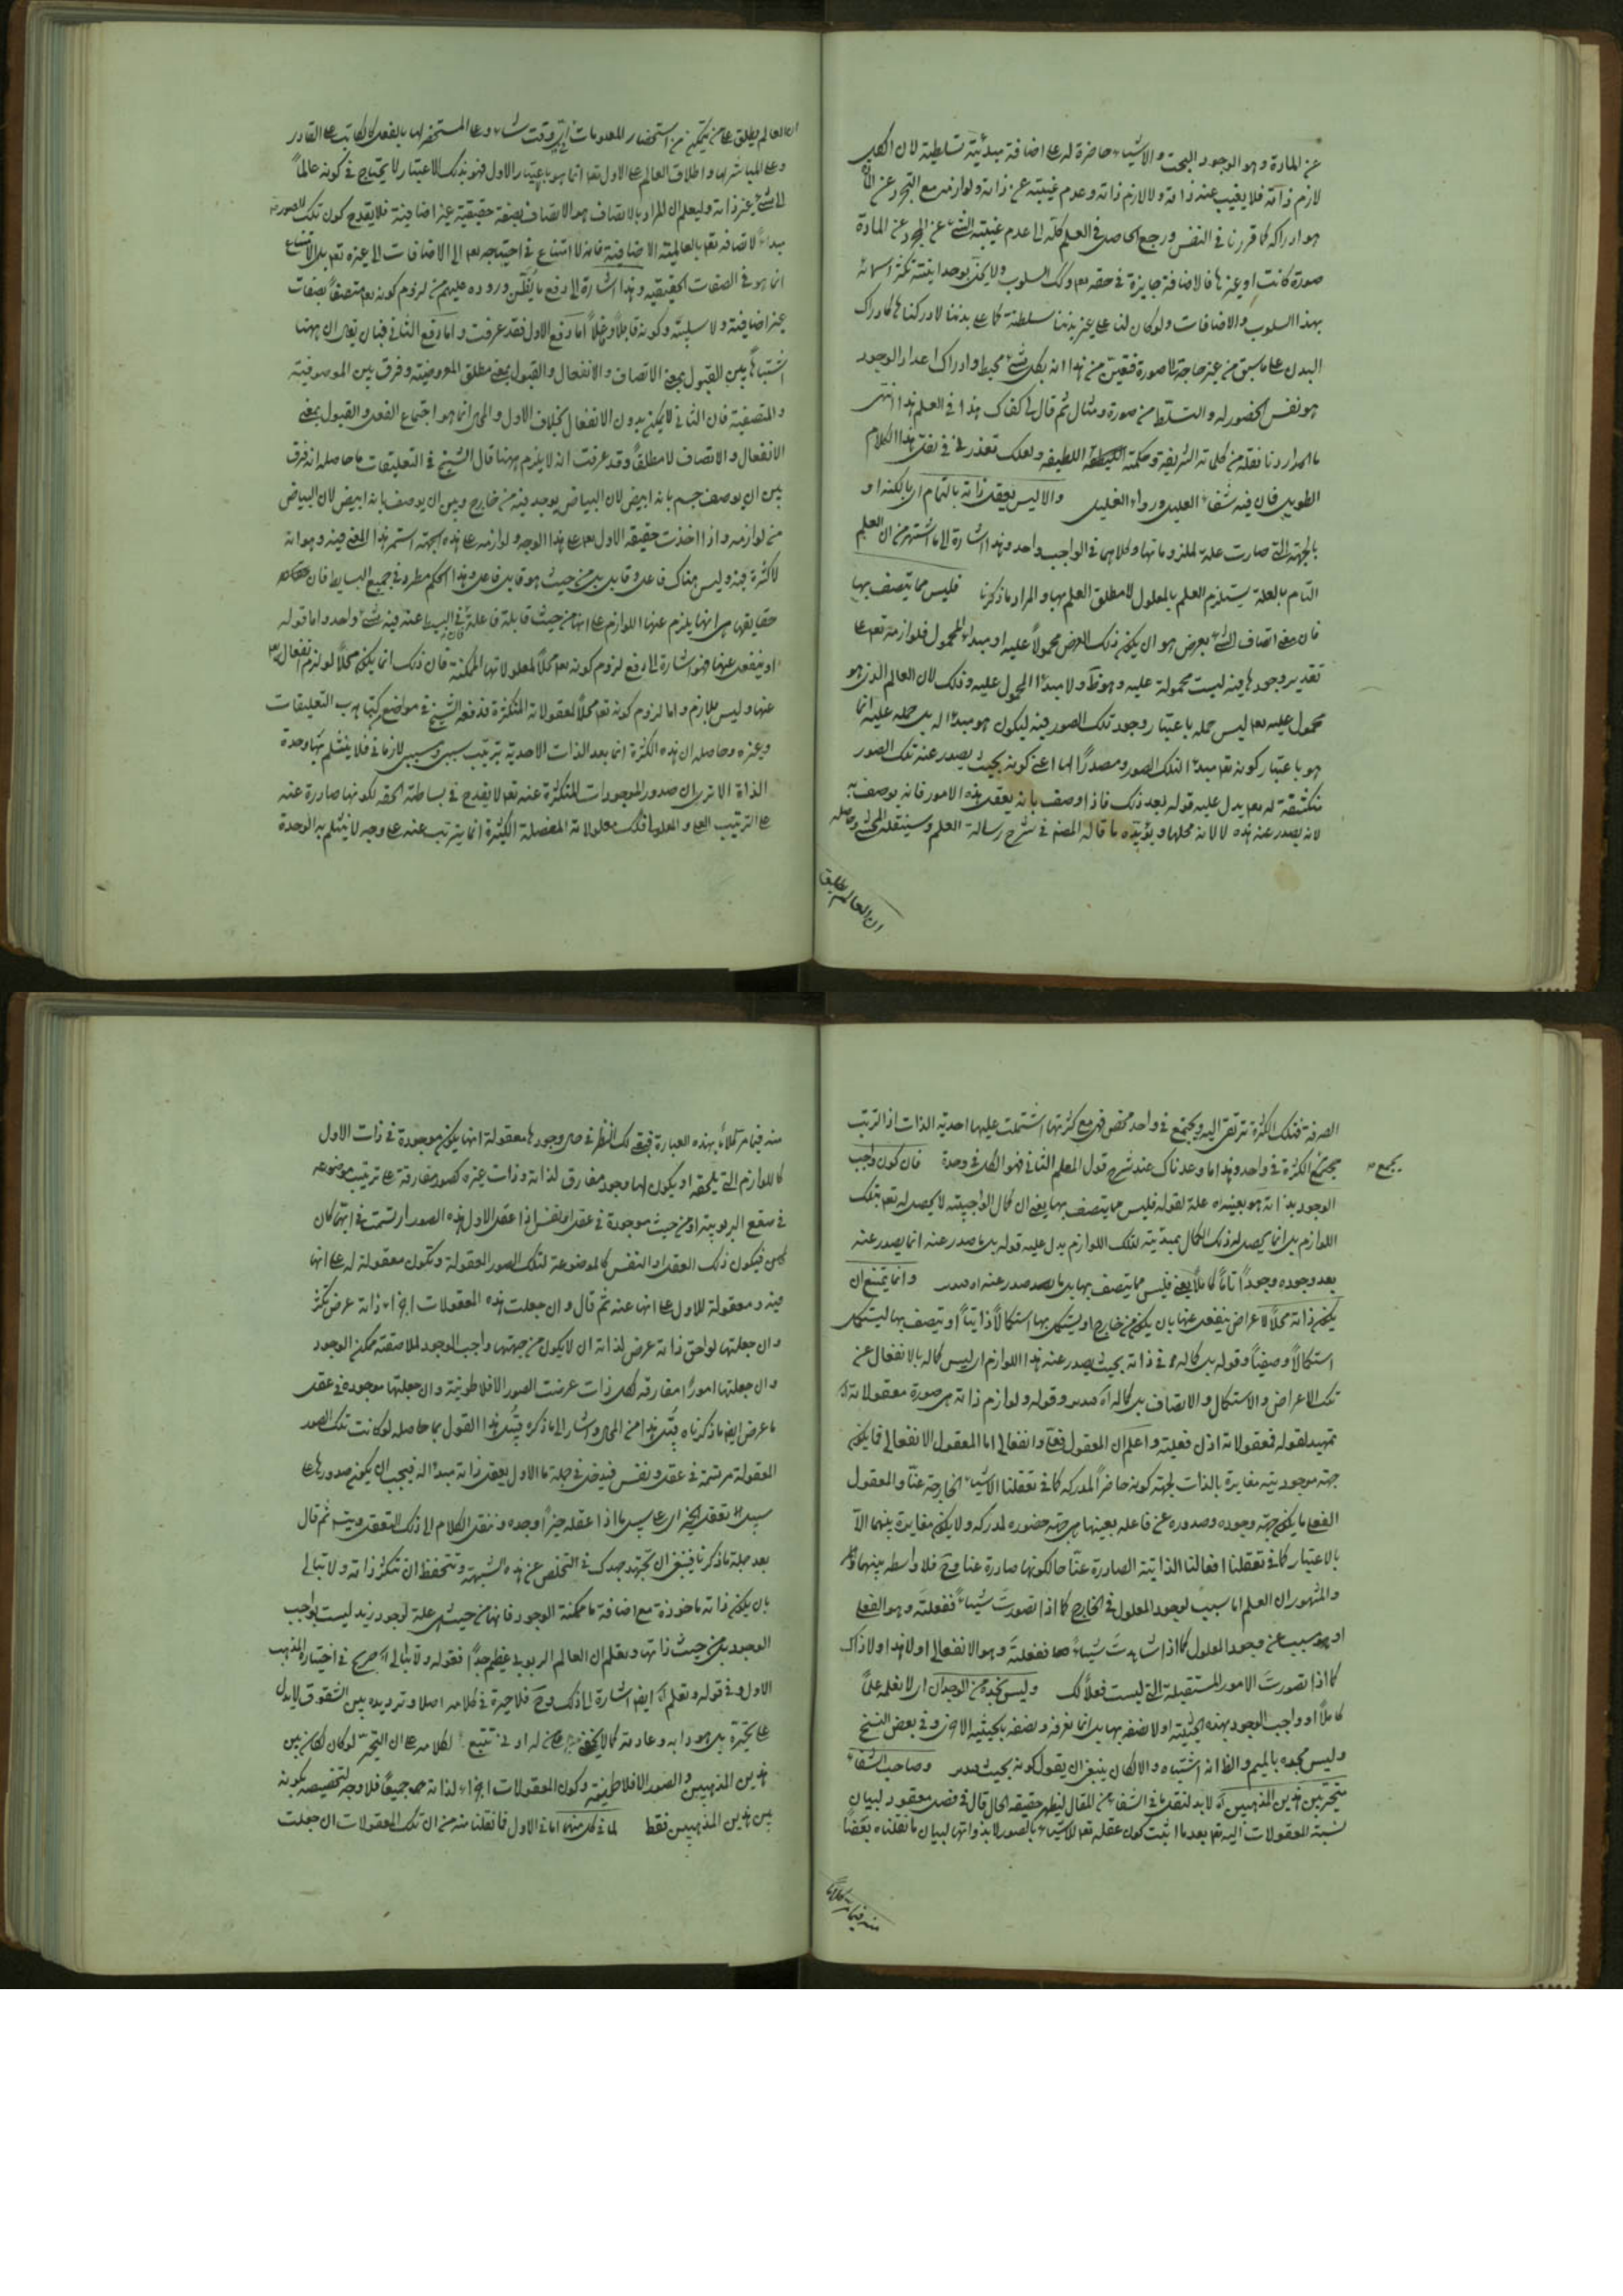 عن المادة وهو الوجود البحت والاشياء حاضرة له على اضافة مبدئية تسلطية لان الكل
لازم ذاته فلا يغيب عنه ذاته ولا لازم ذاته وعدم غيبته عن ذاته ولوازمه مع التجرد عن المادة
هو ادراكه كما قررنا في النفس ورجع الحاصل في العلم كله الى عدم غيبة الشئ عن المجرد عن المادة
صورة كانت او غيرها فالاضافة جايزة في حقه تعم وكك السلوب ولا يخل بوحدانيته تكثر اسمائه
بهذا السلوب والاضافات ولو كان لنا على غير بدننا سلطنة كما على بدننا لادركنا ه كادراك
البدن على ما سبق من غير حاجة الى صورة فتعين من هذا انه بكل شئ محيط وادراك اعداد الوجود
هو نفس الحضور له والتسلط من صورة ومثال ثم قال لى كفاك هذا في العلم هذا انتهى
ما اردنا نقله من كلماته الشريفة وحكمته اللطيفة ولعلك تعذرني في نقل هذا الكلام
الطويل فان فيه شفاء العليل ورواء الغليل والا ليس يعقل ذاته بالتمام اي بالكنه او
بالجهة التي صارت علة لملزوماتها وكلاهما في الواجب واحد وهذا اشارة الى ما اشتهر من ان العلم
التام بالعلة يستلزم العلم بالمعلول لا مطلق العلم بها والمراد ما ذكرنا فليس مما يتصف بها
فان معنى اتصاف الشئ بعرض هو ان يكون ذلك العرض محمولا عليه او مبداء المحمول فلوازمه تعم على
تقدير وجودها فيه ليست محمولة عليه وهو ظ ولا مبدأ المحمول عليه وذلك لان العالم الذي هو
محمول عليه تعم ليس حمله باعتبار وجود تلك الصور فيه ليكون هو مبدأ له بل حمله عليه انما
هو باعتبار كونه تعم مبدء التلك الصور ومصدرا لها اعني كونه بحيث يصدر عنه تلك الصور
منكشفة له تعم يدل عليه قوله بعد ذلك فاذا وصف بانه يعقل هذه الامور فانه يوصف به
لانه يصدر عنه هذه لا لانه محلها ويؤيده ما قاله المصنف في شرح رسالة العلم وسينقله المحشى وحاصله
ان العالم يطلق
ان العالم يطلق على من يتمكن من استحضار المعلومات اي وقت شاء وعلى المستحضر لها بالفعل كالكاتب على القادر
وعلى المباشر لها واطلاق العالم على الاول تعم انما هو باعتبار الاول فهو بذلك الاعتبار لا يحتاج في كونه عالما
الى شئ غير ذاته وليعلم ان المراد بالاتصاف هو الاتصاف بصفة حقيقية غير اضافية فلا يقدح كون تلك الصورة
مبداء لاتصافه تعم بالعالمية الاضافية فانه لا امتناع في احتياجه تعم الى الاضافات الى غيره تعم بل الامتناع
انما هو في الصفات الحقيقيه وهذا اشارة الى دفع ما يظن وروده عليهم من لزوم كونه تعم متصفا بصفات
غير اضافية ولا سلبية وكونه قابلا وفاعلا اما دفع الاول فقد عرفت واما دفع الثاني فبان يقال ان ههنا
اشتباها بين القبول بمعنى الاتصاف والانفعال والقبول بمعنى مطلق المعروضية وفرق بين الموصوفية
والمتصفية فان الثاني لا يمكن بدون الانفعال بخلاف الاول والمحال انما هو اجتماع الفعل والقبول بمعنى
الانفعال والاتصاف لا مطلقا وقد عرفت انه لا يلزم ههنا قال الشيخ في التعليقات ما حاصله انه فرق
بين ان يوصف جسم بانه ابيض لان البياض يوجد فيه من خارج وبين ان يوصف بانه ابيض لان البياض
من لوازمه واذا اخذت حقيقة الاول تعم على هذا الوجه ولوازمه على هذه الجهة استمر هذا المعنى فيه وهو انه
لا كثرة فيه وليس هناك فاعل وقابل بل من حيث هو قابل فاعل وهذا الحكم مطرد في جميع البسايط فان
حقايقها هي انها يلزم عنها اللوازم على انها من حيث قابلة فاعلة فان في البسيط عنه فيه شئ واحد واما قوله
او ينفعل عنها فهو اشارة الى دفع لزوم كونه تعم محلا لمعلولاتها الممكنة فان ذلك انما يكون محالا لو لزم انفعاله
عنها وليس بلازم واما لزوم كونه تعم محلا لمعقولاته المتكثرة فدفعه الشيخ في مواضع كتبه التعليقات
وغيره وحاصله ان هذه الكثرة انما بعد الذات الاحدية بترتيب سببي ومسببي لا زماني فلا ينثلم بها وحدة
الذاة الا ترى ان صدور الموجودات المتكثرة عنه تعم لا يقدح في بساطته الحقه لكونها صادرة عنه
على الترتيب العلى والمعلولى فكك معلولاته المفصلة الكثيرة انما يترتب عنه على وجه لا ينثلم به الوحدة
الصرفة فتلك الكثرة ترتقي اليه ويجتمع في واحد محض فهي مع كثرتها اشتملت عليها احدية الذات اذ الترتب
يجمع الكثرة في واحد وهذا ما وعدناك عند شرح قول المعلم الثاني فهو الكل في وحدة فان كون واجب
يجمع
الوجود بذاته هو بعينه اه علة لقوله فليس مما يتصف بها يعني ان كمال الواجبية لا يحصل له تعم بتلك
اللوازم بل انما يحصل له ذلك الكمال بمبدئية لتلك اللوازم يدل عليه قوله بل ما صدر عنه انما يصدر عنه
بعد وجوده وجودا تاما كاملا يعني فليس مما يتصف بها بل ما يصدر عنه وانما يمتنع ان
يكون ذاته محلا لاعراض ينفعل عنها بان يكون من خارج او يستكمل بها استكمالا ذاتيا او يتصف بها ليستكمل
استكمالا وصفيا وقوله بل كماله في ذاته بحيث يصدر عنه هذا اللوازم اى ليس كماله بالانفعال عن
تلك الاعراض والاستكمال والاتصاف بل كماله اه وقوله ولوازم ذاته هي صورة معقولاته اه
تمهيد لقوله فمعقولاته اذن فعلية واعلم ان المعقول فعلي وانفعالى اما المعقول الانفعالى فما يكون
جهة موجوديته مغايرة بالذات لجهة كونه حاضرا لمدركه كما في تعقلنا الاشياء الخارجة عنا والمعقول
الفعلى ما يكون جهة وجوده وصدوره عن فاعله بعينها هي جهة حضوره لمدركه ولا يكون مغايرة بينهما الا
بالاعتبار كما في تعقلنا افعالنا الذاتية الصادرة عنا حال كونها صادرة عنا وح فلا واسطه بينهما
والمشهور ان العلم اما سبب لوجود المعلول في الخارج كما اذا تصورت شيئا ففعلته وهو الفعلى
او مسبب عن وجود المعلول كما اذا شاهدت شيئا ففعلته وهو الانفعالى او لا هذا ولا ذاك
كما اذا تصورت الامور المستقبلة التي ليست فعلا لك وليس نجده من الوجدان اى لا نعلمه علما
كاملا او واجب الوجود بهذه الحيثية اولا نصفه بها بل انما نعرفه ونصفه بالحيثية الاخرى وفي بعض النسخ
وليس مجده بالميم والظ انه اشتباه والا لكان ينبغي ان يقول كونه بحيث وصاحب الشفاء
متحير بين هذين المذهبين اه لا بد لنقل ما في الشفاء من المقال ليظهر حقيقة الحال قال في فصل معقود لبيان
نسبة المعقولات اليه تعم بعد ما اثبت كون عقله تعم للاشياء بالصور لا بذواتها لبيان ما نقلناه بعضا
منه فيما مر كلاما
منه فيما مر كلاما بهذه العبارة فبقى لك النظر في حال وجودها معقولة انها يكون موجودة في ذات الاول
كاللوازم التي تلحقه او يكون لها وجود مفارق لذاته وذات غيره كصور مفارقة على ترتيب موضوعه
في صقع الربوبية او من حيث موجودة في عقل او نفس اذا عقل الاول هذه الصور ارتسمت في ايهما كان
فيكون ذلك العقل او النفس كالموضوعة لتلك الصور المعقولة وتكون معقولة له على انها
فيه ومعقولة للاول على انها عنه ثم قال وان جعلت هذه المعقولات اجزاء ذاته عرض تكثر
وان جعلتها لواحق ذاته عرض لذاته ان لا يكون من جهتها واجب الوجود لملاصقته ممكن الوجود
وان جعلتها امورا مفارقه لكل ذات عرضت الصور الافلاطونية وان جعلتها موجودة في عقل
ما عرض ايضا ما ذكرناه قبل هذا من المحال واشار الى ما ذكره قبل هذا القول بما حاصله لو كانت تلك الصور
المعقولة مرتسمة في عقل ونفس فيدخل في جملة ما الاول يعقل ذاته مبدأ له فيجب ان يكون صدورها على
سبيل تعقل الخير اى على سبيل ما اذا عقله خيرا وجد وننقل الكلام الى ذلك التعقل ويتس ثم قال
بعد جملة ما ذكرنا فينبغي ان تجتهد جهدك في التخلص عن هذه الشبهة وتتحفظ ان تتكثر ذاته ولا تبالى
بان يكون ذاته ماخوذة مع اضافة ما ممكنة الوجود فانها من حيث هي علة لوجود زيد ليست بواجب
الوجود بل من حيث ذاتها وتعلم ان العالم الربوبي عظيم جدا فقوله ولا تبالى اه صريح في اختياره المذهب
الاول وفي قوله وتعلم اه ايضا اشارة الى ذلك وح فلا حيرة في كلامه اصلا وترديده بين الشقوق لا يدل
على تحيره بل هو دابه وعادته كما لا يخفى على من له ادنى تتبع لكلامه على ان التحير لو كان لكان بين
هذين المذهبين والصور الافلاطونية وكون المعقولات اجزاء لذاته جميعا فلا وجه لتخصيصه بكونه
بين هذين المذهبين فقط لما في كل منهما اما في الاول فما نقلنا منه من ان تلك المعقولات ان جعلت